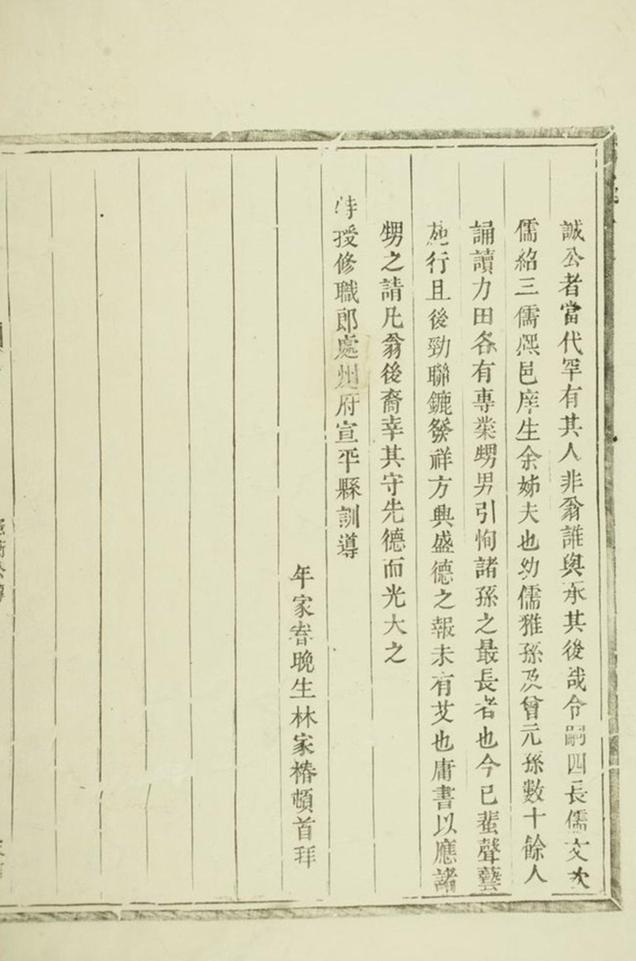 誠公者當代罕有其人非翁誰與承其後哉令嗣四長儒文次
儒紹三儒熈邑庠生余姊夫也幼儒雅孫及曾元孫數十餘人
誦讀力田各有專業甥男引恂諸孫之最長者也今已蜚聲藝
苑行且後勁聯鑣發祥方興盛德之報未有艾也庸書以應諸
甥之請凡翁後裔幸其守先德而光大之
特授修職郎處州府宣平縣訓導
年家眷晚生林家椿頓首拜